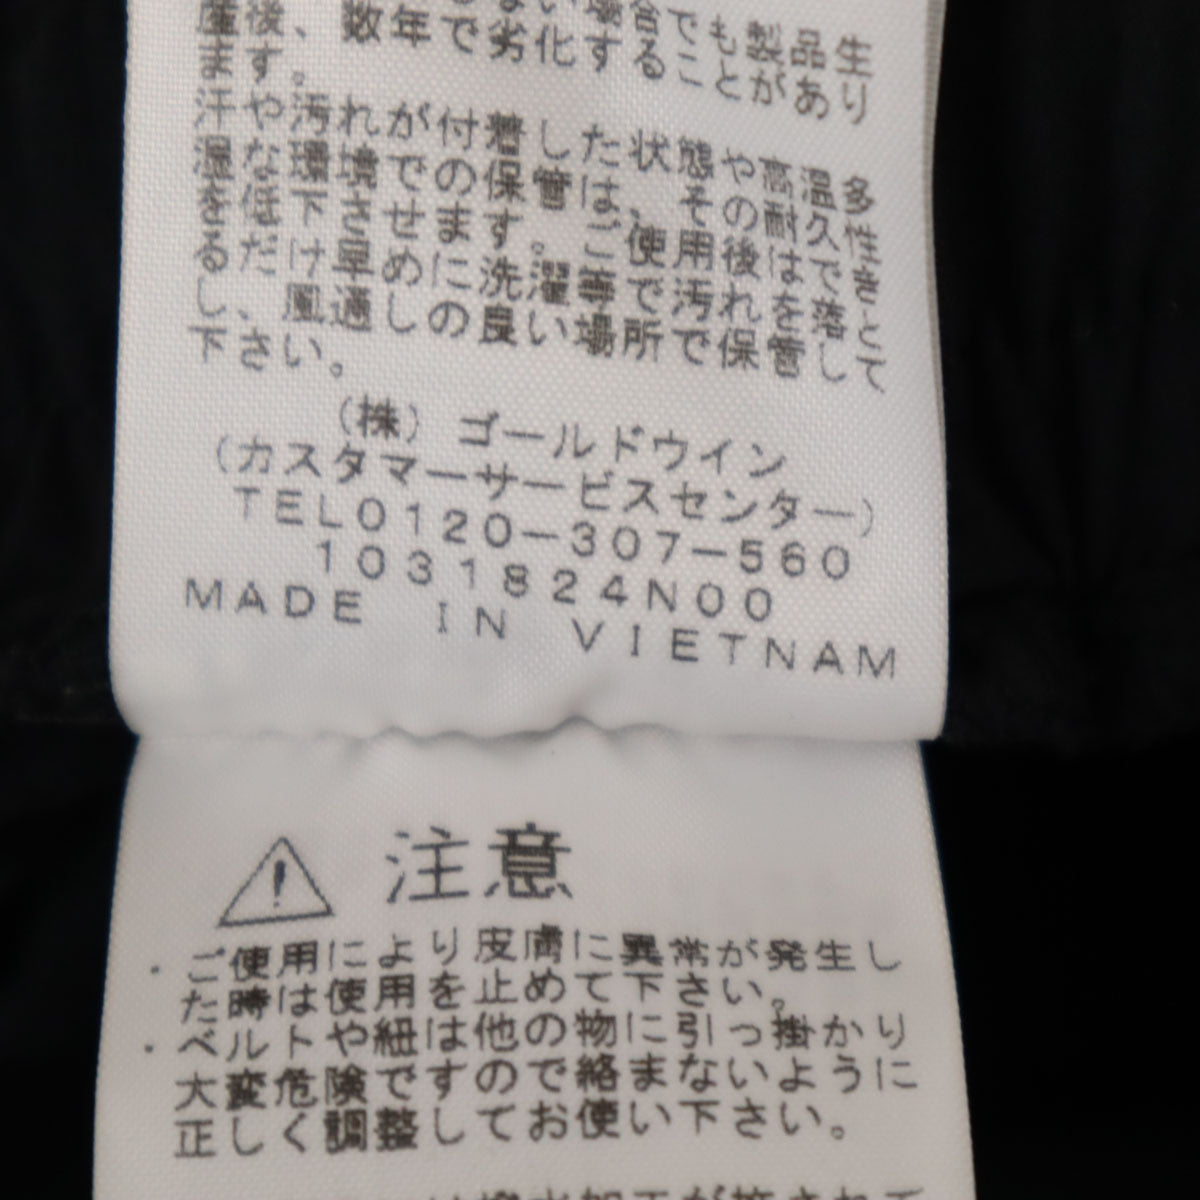 い場合でも製品生
産後、数年で劣化することがあり
ます。
汗や汚れが付着した状態や高温多
湿な環境での保管は、その耐久性
を低下させます。ご使用後はでき
るだけ早めに洗濯等で汚れを落と
し、風通しの良い場所で保管して
下さい。
(株)ゴールドウイン
(カスタマーサービスセンター)
TEL0120-307-560
1031824N00
MADE IN VIETNAM
注意
・ご使用により皮膚に異常が発生し
た時は使用を止めて下さい。
・ベルトや紐は他の物に引っ掛かり
大変危険ですので絡まないように
正しく調整してお使い下さい。